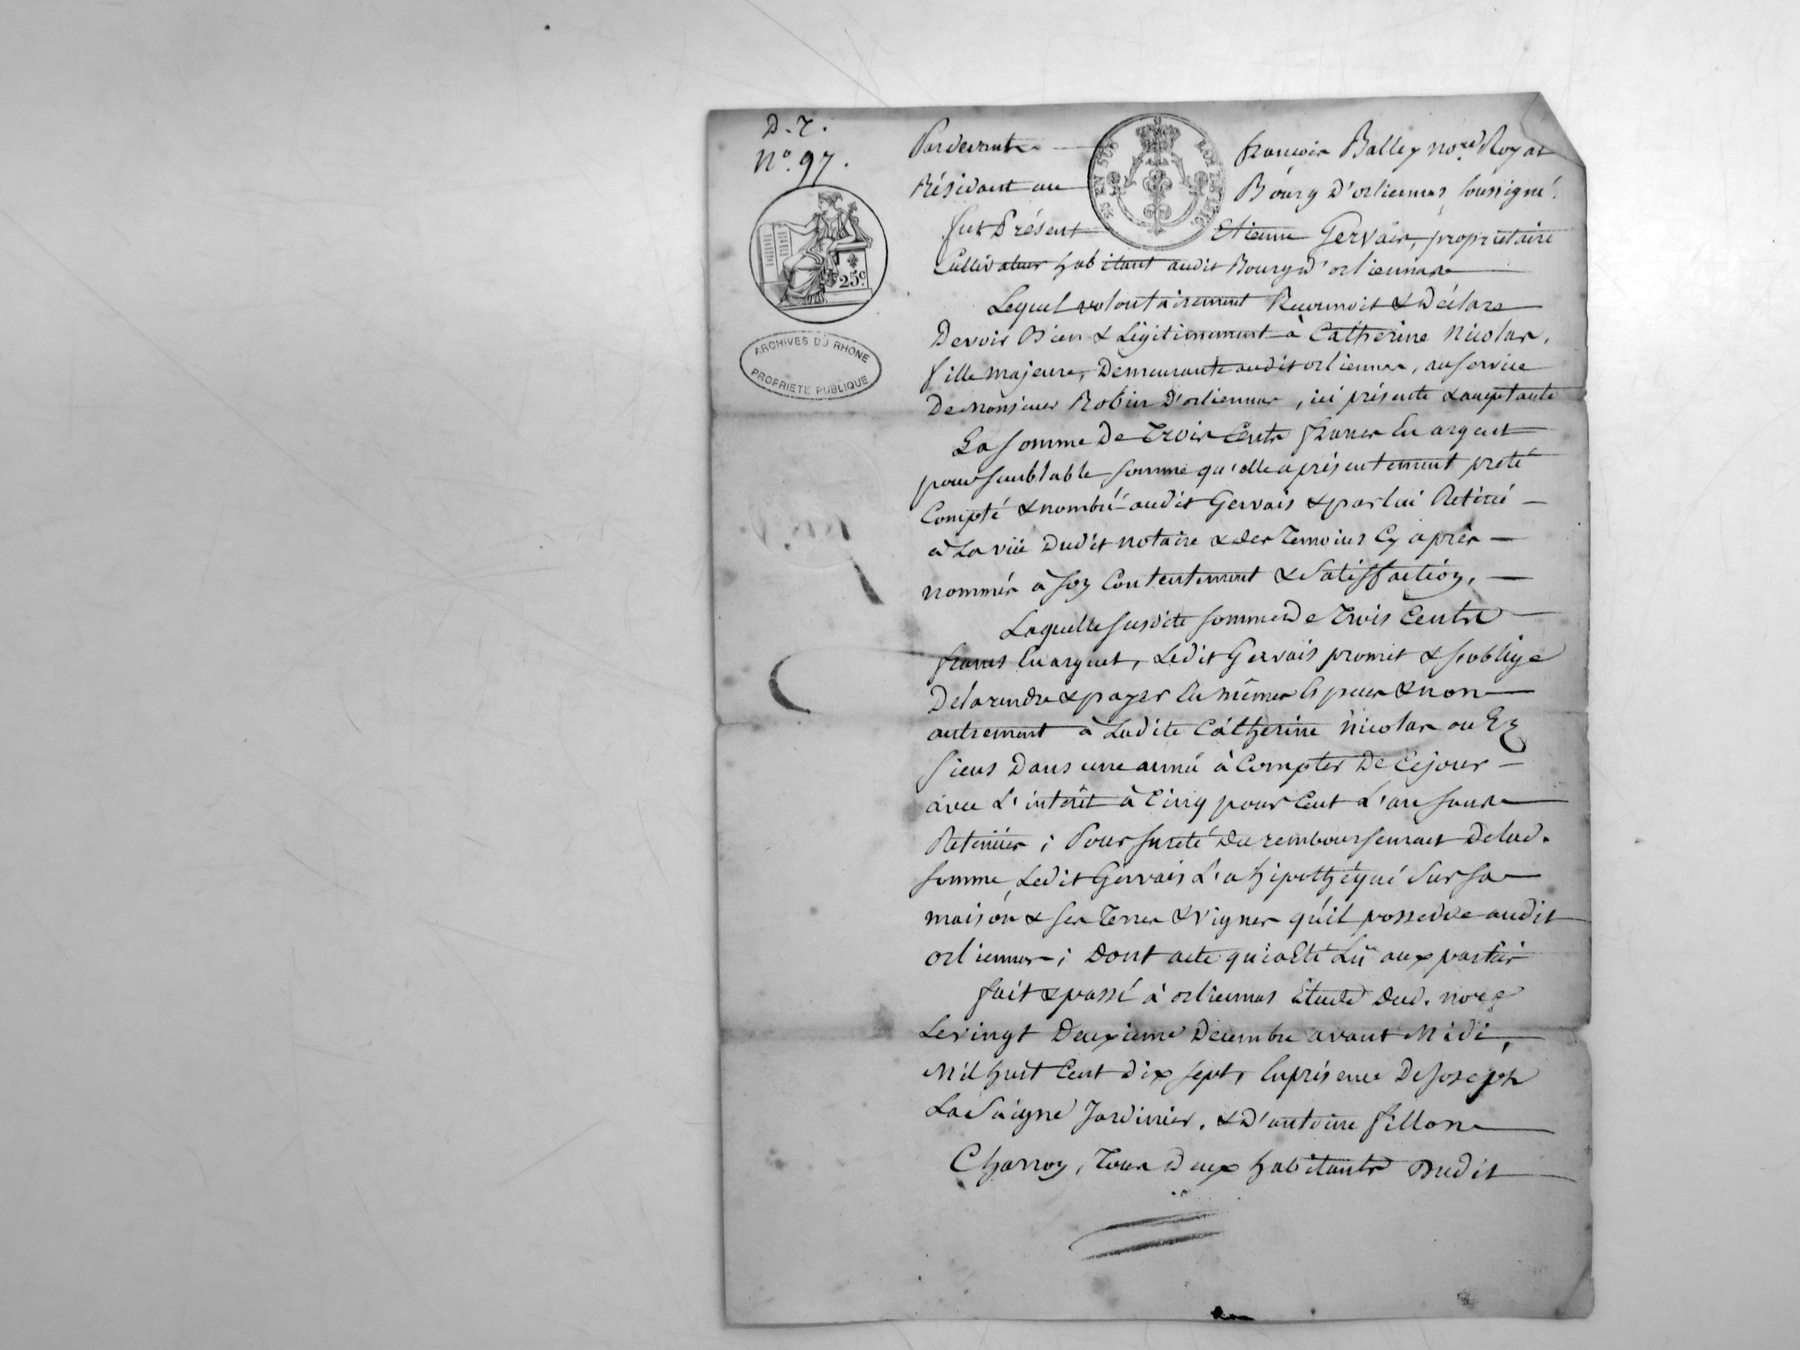 D. 7.
N.º 97.
25c.
ARCHIVES DU RHONE
PROPRIETE PUBLIQUE
Pardevant françois Balley no.re Royal
Résidant au Bourg D'orlienas soussigné.
fut Présent Etienne Gervais, propriétaire
Cultivateur habitant audit Bourg d'orlienas
Lequel volontairement Reconnoit & Déclare
Devoir Bien & Légitimement à Catherine Nicolas,
fille majeure, Demeurante audit orlienas, au service
De Monsieur Robin D'orlienas, ici présente & acceptante
La somme De Trois Cents francs En argent
pour semblable somme qu'elle a présentement preté
Compté & nombré audit Gervais & par lui Retiré
à La vüe Dudit notaire & des Temoins Cy après
nommés à son Contentement & Satisfaction,
Laquelle susdite somme De Trois Cents
francs En argent, Ledit Gervais promet & s'oblige
De la rendre & payer En mêmes Especes & non
autrement à Ladite Catherine Nicolas ou Ez
siens Dans une année à Compter De Cejour
avec L'intérêt à Cinq pour Cent L'an sans
Retenües ; Pour sureté Du remboursement Delad.
somme, Ledit Gervais L'a hipothéqué Sur sa
maison & ses Terres & Vignes qu'il possedde audit
orlienas ; Dont acte qui a Eté Lü aux parties
fait & passé à orlienas Etude Dud. no.re
Le vingt Deuxieme Decembre avant Midi,
Mil huit Cent dix sept, En présence De Joseph
La Saigne Jardinier, & D'antoine fillon
Charron, Tous Deux habitants Dudit